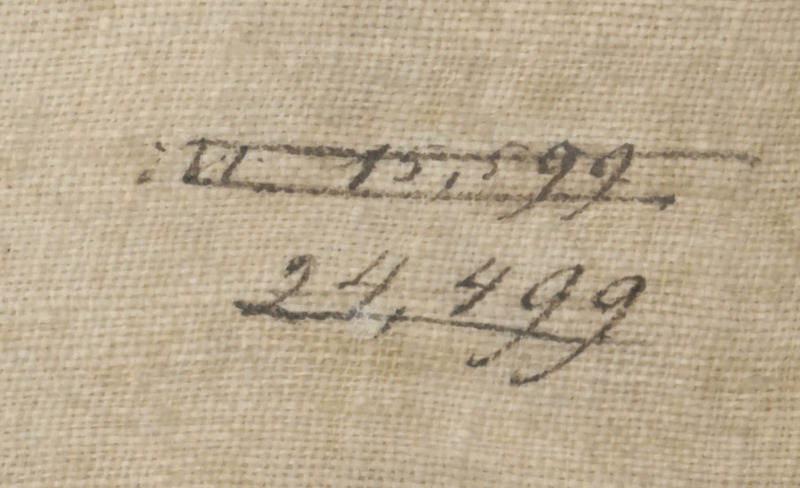 15,599
24,499